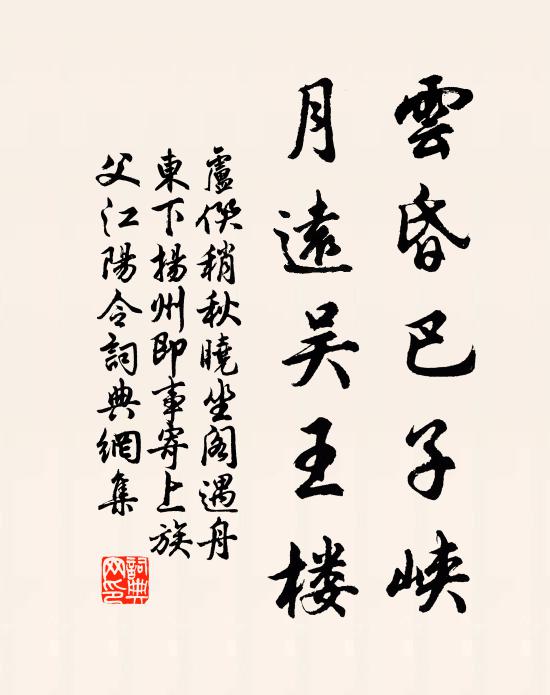 雲昏巴子峽
月遠吴王楼
盧僎稍秋曉坐閣遇舟
東下揚州即事寄上族
父江陽令詞典網集
詞典
网印